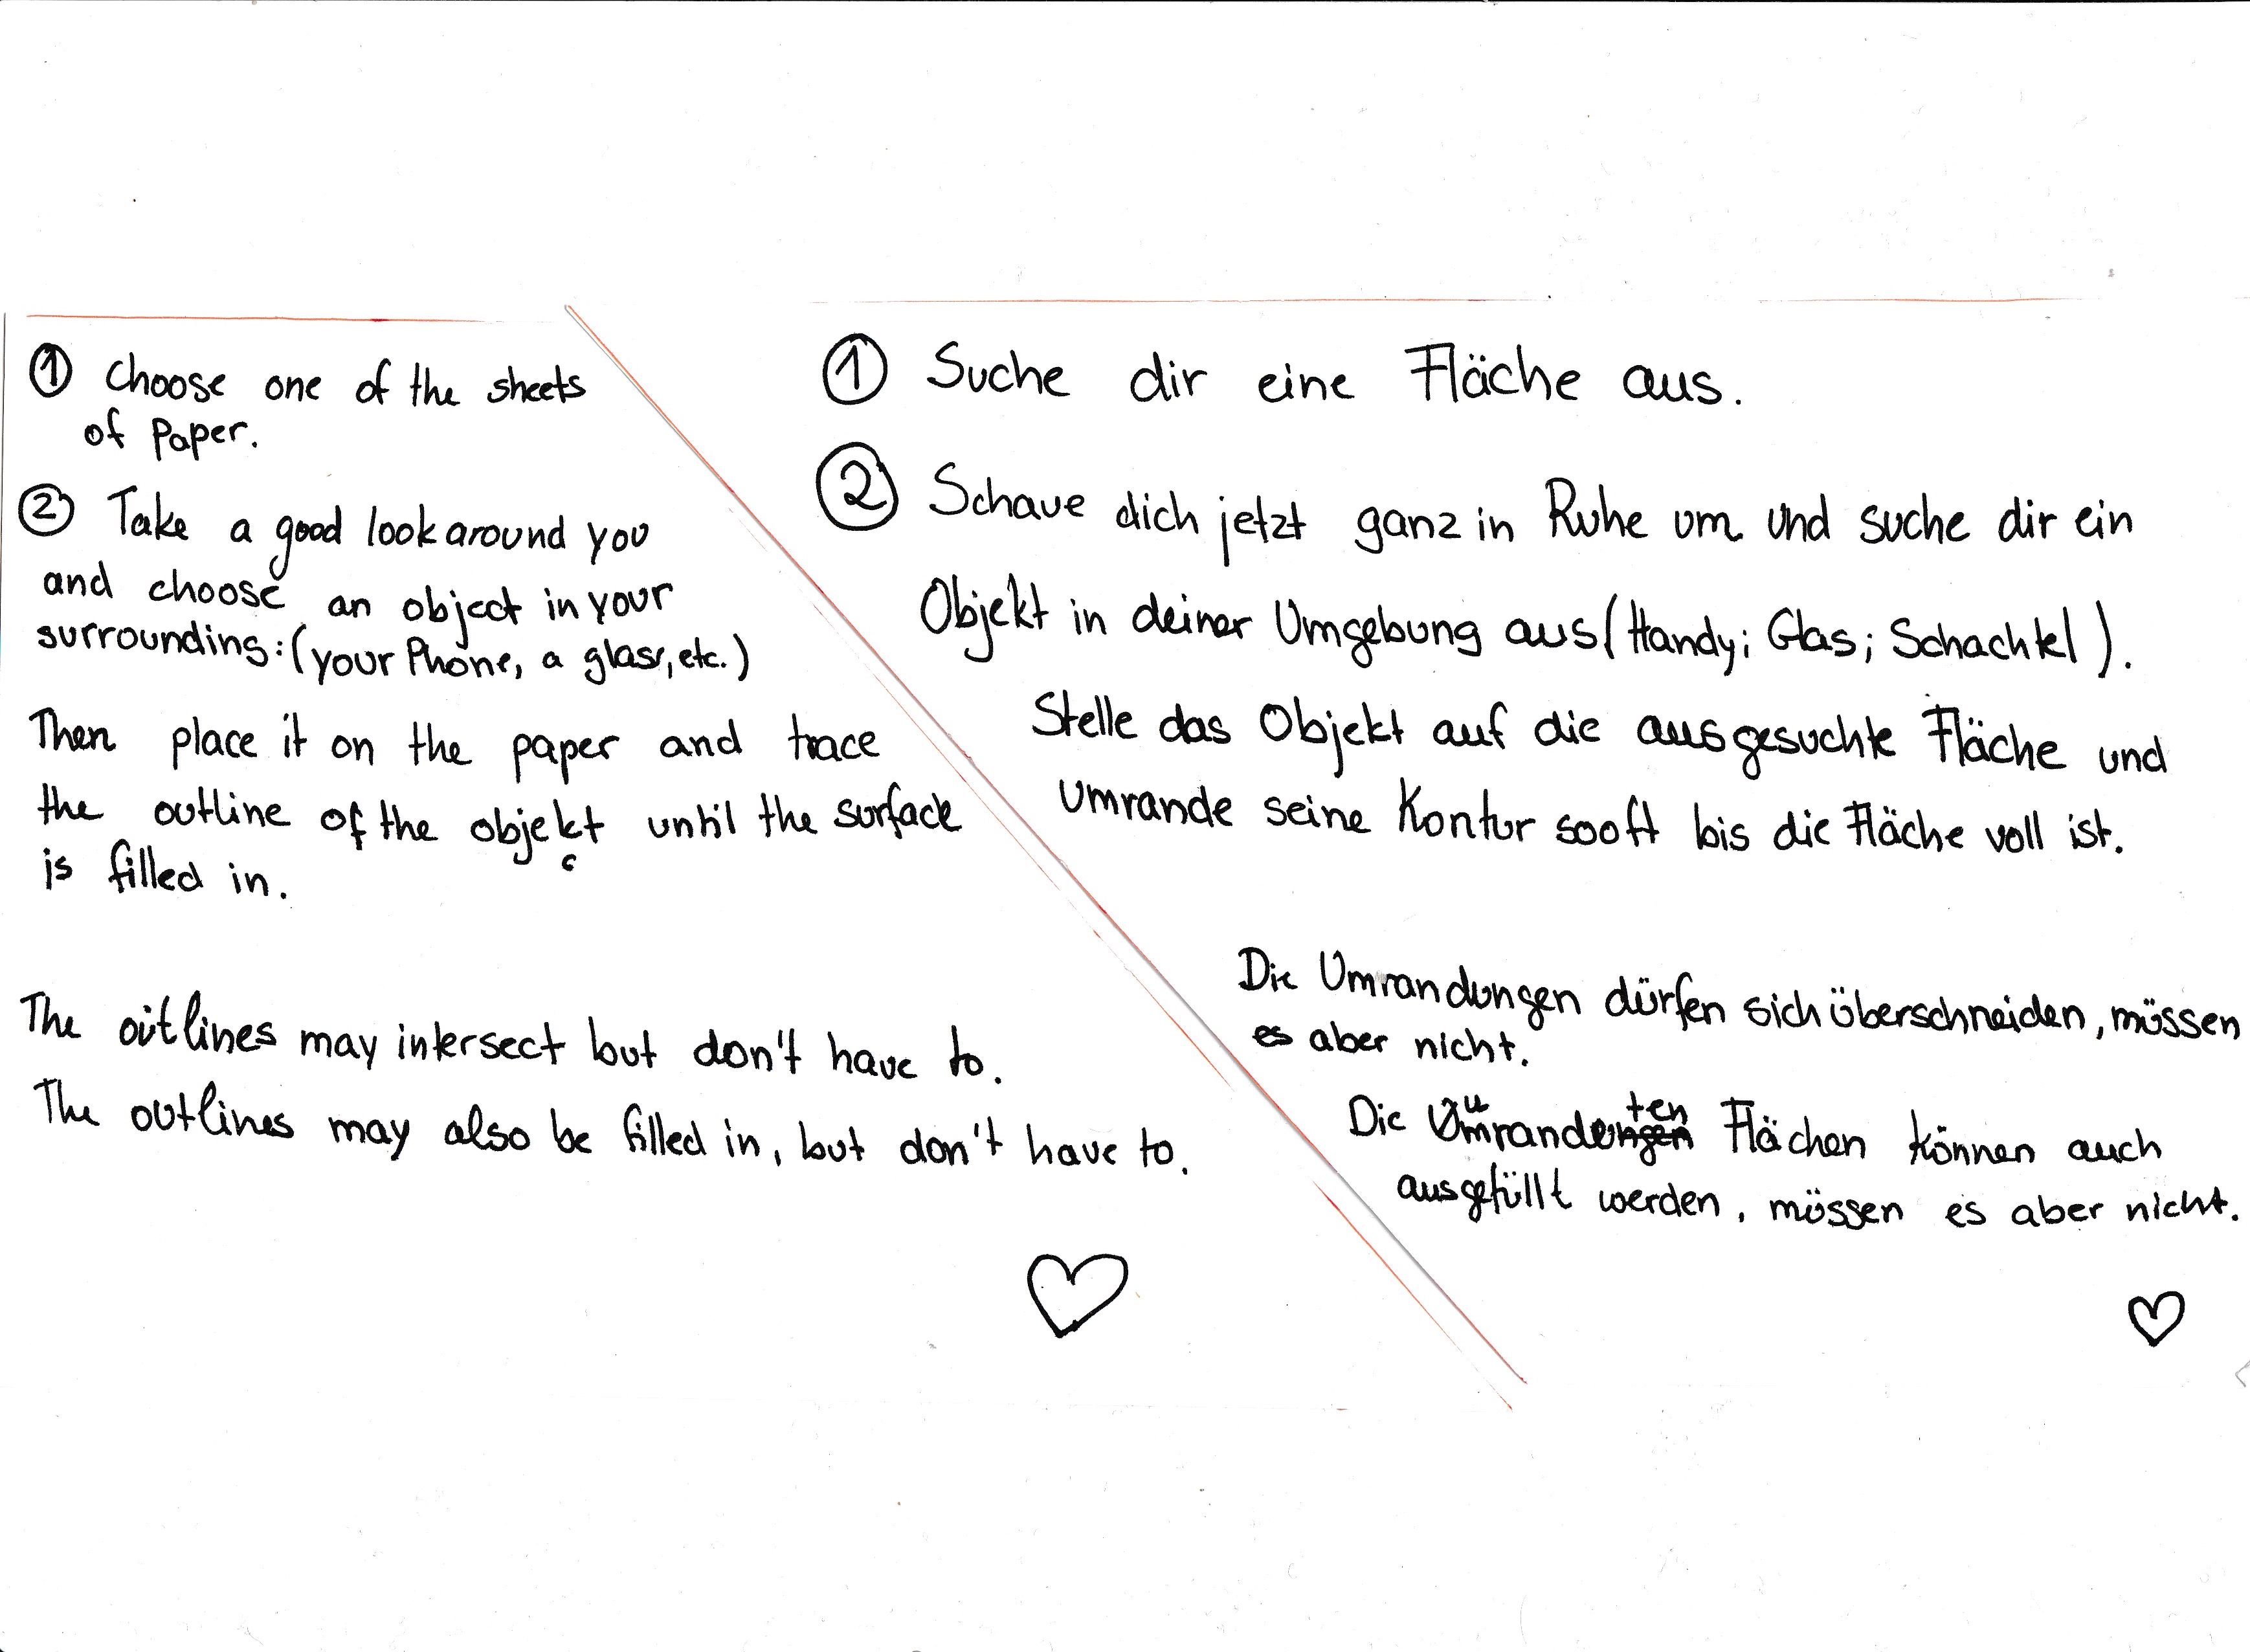 ① Choose one of the sheets
of Paper.
② Take a good look around you
and choose an object in your
surrounding: (your Phone, a glass, etc.)
Then place it on the paper and trace
the outline of the objekt until the surface
c
is filled in.
The outlines may intersect but don't have to.
The outlines may also be filled in, but don't have to.
① Suche dir eine Fläche aus.
② Schaue dich jetzt ganz in Ruhe um und suche dir ein
Objekt in deiner Umgebung aus (Handy; Glas; Schachtel).
Stelle das Objekt auf die ausgesuchte Fläche und
umrande seine Kontur sooft bis die Fläche voll ist.
Die Umrandungen dürfen sich überschneiden, müssen
es aber nicht.
Die umrandeten Flächen können auch
ausgefüllt werden, müssen es aber nicht.